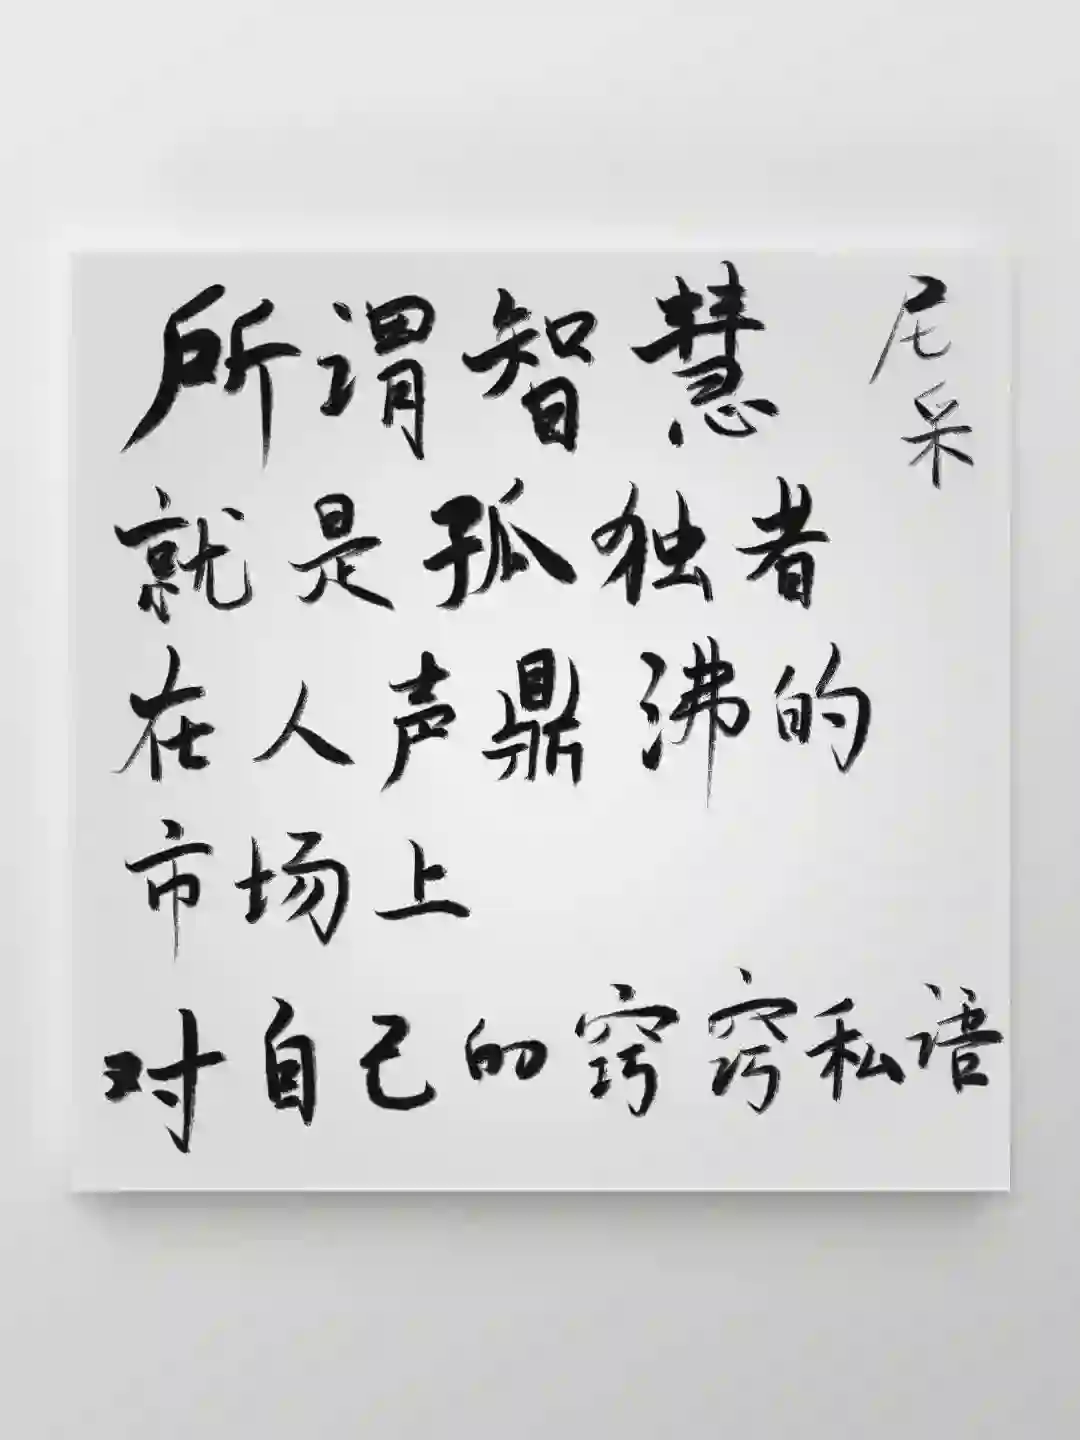 所谓智慧
就是孤独者
在人声鼎沸的
市场上
对自己的窍窍私语
尼采